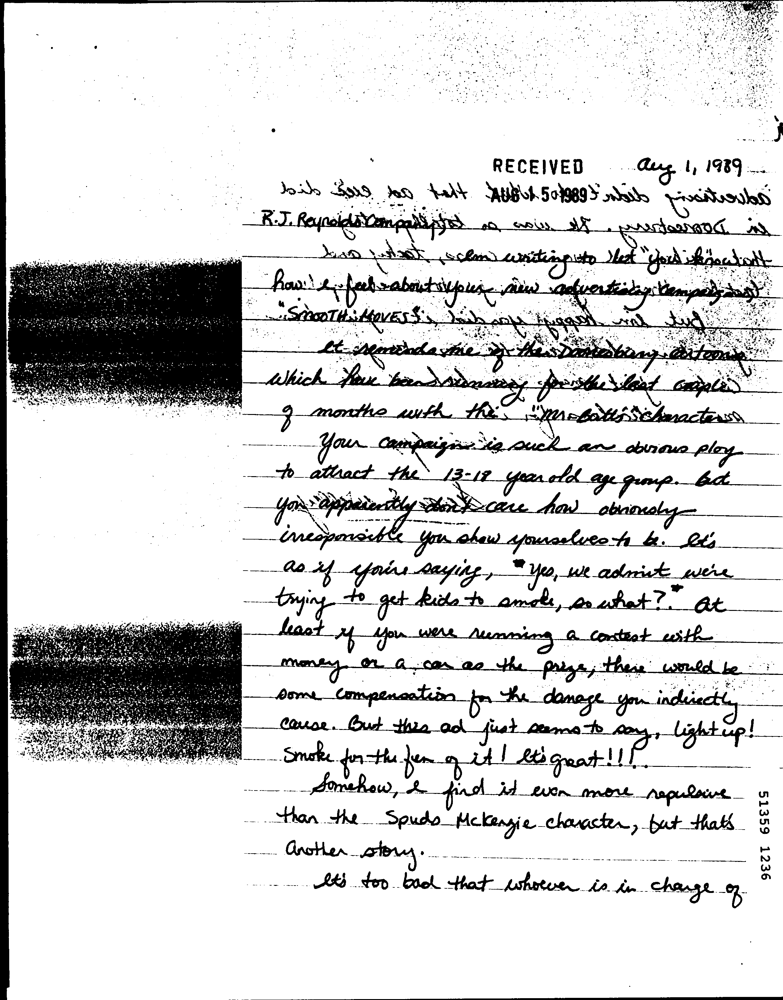 RECEIVED Aug 1, 1989
AUG 1 5 1989
R.J. Reynolds Company,
I am writing to let you know
how I feel about your new advertising campaign,
"SMOOTH MOVES".
It reminds me of the Doonesbury cartoons
which have been running for the last couple
of months with the "Mr. Butts" character.
Your campaign is such an obvious ploy
to attract the 13-18 year old age group. But
you apparently don't care how obviously
irresponsible you show yourselves to be. It's
as if you're saying, "Yes, we admit we're
trying to get kids to smoke, so what?" At
least if you were running a contest with
money or a car as the prize, there would be
some compensation for the damage you indirectly
cause. But this ad just seems to say, light up!
Smoke for the fun of it! It's great!!!
Somehow, I find it even more repulsive
than the Spuds McKenzie character, but that's
another story.
It's too bad that whoever is in charge of
51359 1236